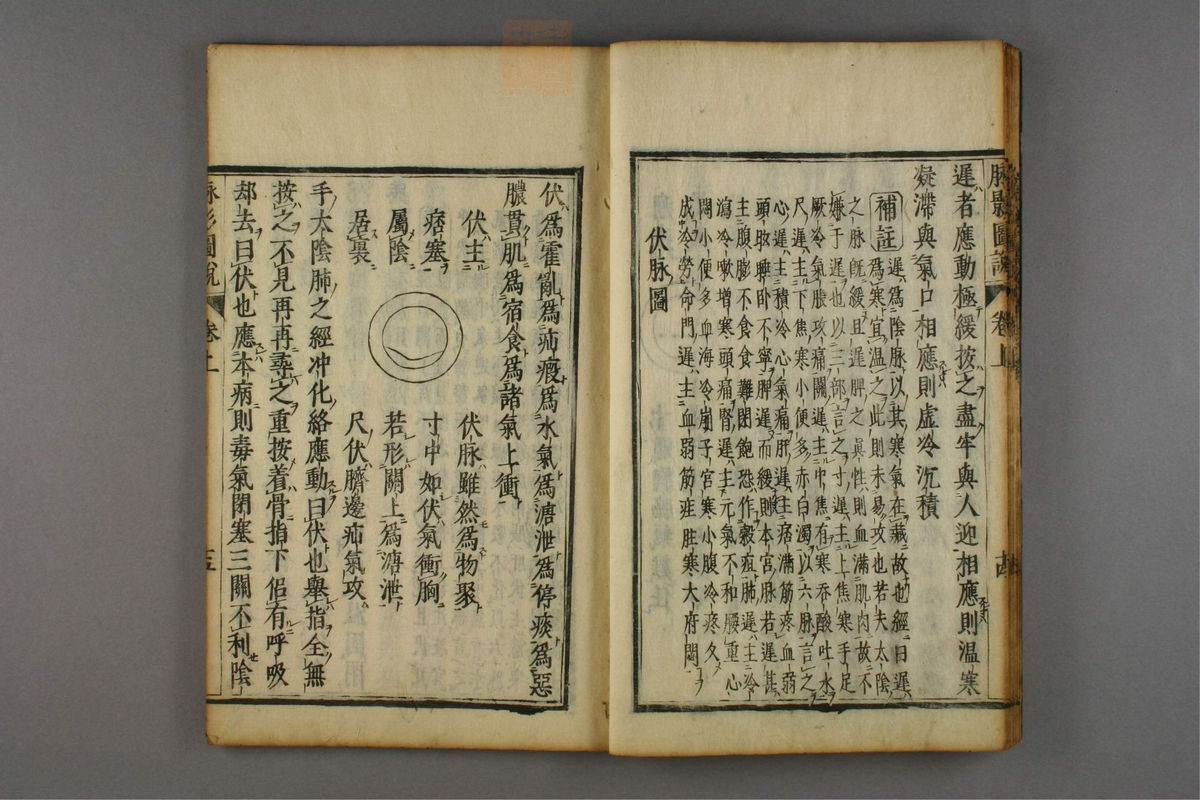 脉影圖說 卷上
遲者應動極緩按之盡牢與人迎相應則温寒
凝滯與氣口相應則虚冷沉積
補註 遲爲陰脉以其寒氣在藏故也經曰遲
爲寒宜温之此則未易攻也若夫太陰
之脉既緩且遲脾之眞性則血滿肌肉故不
嫌于遲也以三部言之寸遲主上焦寒手足
厥冷氣脹攻痛關遲主中焦有寒吞酸吐水
尺遲主下焦寒小便多赤白濁以六脉言之
心遲主積冷心氣痛肝遲主痞滿筋疼血弱
頭眩睡卧不寧脾遲而緩則本宮脉若遲甚
主腹膨不食食難閉飽恐作穀疽肺遲主冷
瀉冷嗽增寒頭痛腎遲主元氣不和腰重心
悶小便多血海冷崩子宮寒小腹冷疼久
成冷勞命門遲主血弱筋疰胜寒大府悶
伏脉圖
伏爲霍亂爲疝瘕爲水氣爲溏泄爲停痰爲惡
膿貫肌爲宿食爲諸氣上衝
伏主
痞塞
屬陰
居裏
伏脉雖然爲物聚
寸中如伏氣衝胸
若形關上爲溏泄
尺伏臍邊疝氣攻
手太陰肺之經冲化絡應動曰伏也舉指全無
按之不見再再尋之重按着骨指下侶有呼吸
却去曰伏也應本病則毒氣閉塞三關不利陰
脉影圖說 卷上